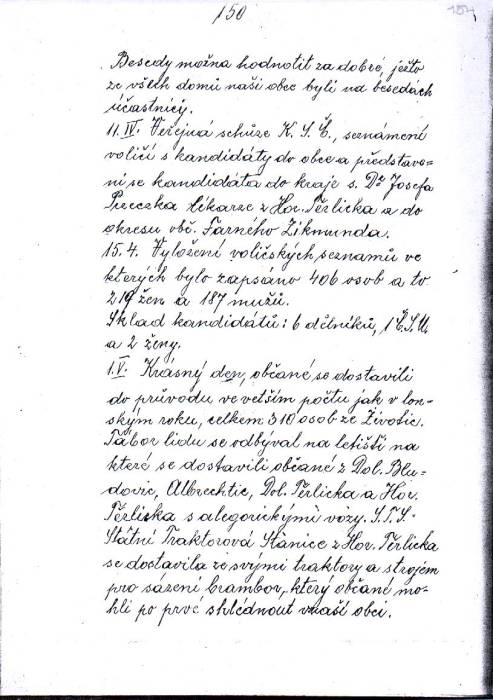 150
154
Besedy možna hodnotit za dobré, ježto
ze všech domů naši obec byli na besedach
účastníci.
11.IV. Veřejná schůze K.S.Č., seznámení
voliči s kandidáty do obce a představe-
ni se kandidáta do kraje s. Dr Josefa
lékarze z Hor. Těrlicka a do
okresu obč. Farného Zikmunda.
15.4. Vyložení voličských seznamů ve
kterých bylo zapsáno 406 osob a to
219 žen a 187 mužů.
Sklad kandidátů: 6 dělníků, 1 Č.S.M.
a 2 ženy.
1.V. Krásný den, občané se dostavili
do průvodu ve vetším počtu jak v lon-
ským roku, celkem 310 osob ze Životic.
Tábor lidu se odbýval na letišti na
které se dostavili občané z Dol. Blu-
dovic, Albrechtic, Dol. Těrlicka a Hor.
Těrlicka s alegorickými vozy. S.T.S.-
Státní Traktorová Stanice z Hor. Těrlicka
se dostavila ze svými traktory a strojem
pro sázení brambor, který občané mo-
hli po prvé shlédnout v naší obci.